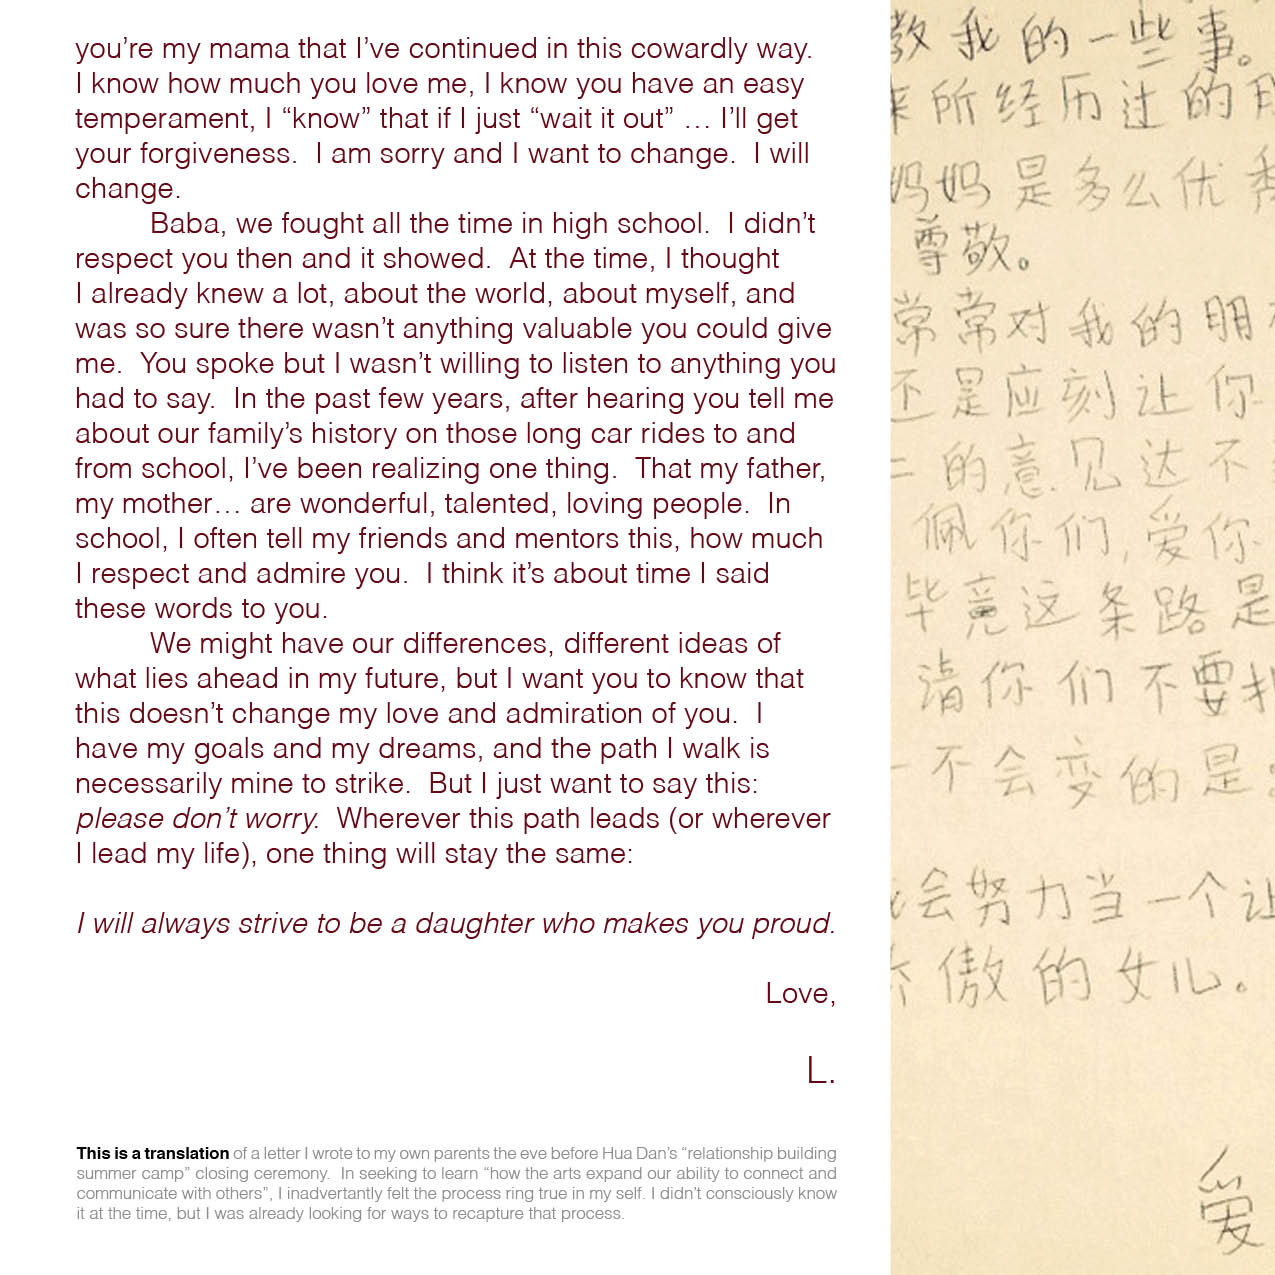 you’re my mama that I’ve continued in this cowardly way.
I know how much you love me, I know you have an easy
temperament, I “know” that if I just “wait it out” … I’ll get
your forgiveness.  I am sorry and I want to change.  I will
change.
Baba, we fought all the time in high school.  I didn’t
respect you then and it showed.  At the time, I thought
I already knew a lot, about the world, about myself, and
was so sure there wasn’t anything valuable you could give
me.  You spoke but I wasn’t willing to listen to anything you
had to say.  In the past few years, after hearing you tell me
about our family’s history on those long car rides to and
from school, I’ve been realizing one thing.  That my father,
my mother… are wonderful, talented, loving people.  In
school, I often tell my friends and mentors this, how much
I respect and admire you.  I think it’s about time I said
these words to you.
We might have our differences, different ideas of
what lies ahead in my future, but I want you to know that
this doesn’t change my love and admiration of you.  I
have my goals and my dreams, and the path I walk is
necessarily mine to strike.  But I just want to say this:
please don’t worry.  Wherever this path leads (or wherever
I lead my life), one thing will stay the same:
I will always strive to be a daughter who makes you proud.
Love,
L.
This is a translation of a letter I wrote to my own parents the eve before Hua Dan’s “relationship building
summer camp” closing ceremony.  In seeking to learn “how the arts expand our ability to connect and
communicate with others”, I inadvertently felt the process ring true in my self. I didn’t consciously know
it at the time, but I was already looking for ways to recapture that process.
教我的一些事。
来所经历过的
妈妈是多么优秀
尊敬。
常常对我的朋
还是应刻让你
的意见达不
佩你们,爱你
毕竟这条路是
请你们不要担
不会变的是:
我会努力当一个让
骄傲的女儿。
爱